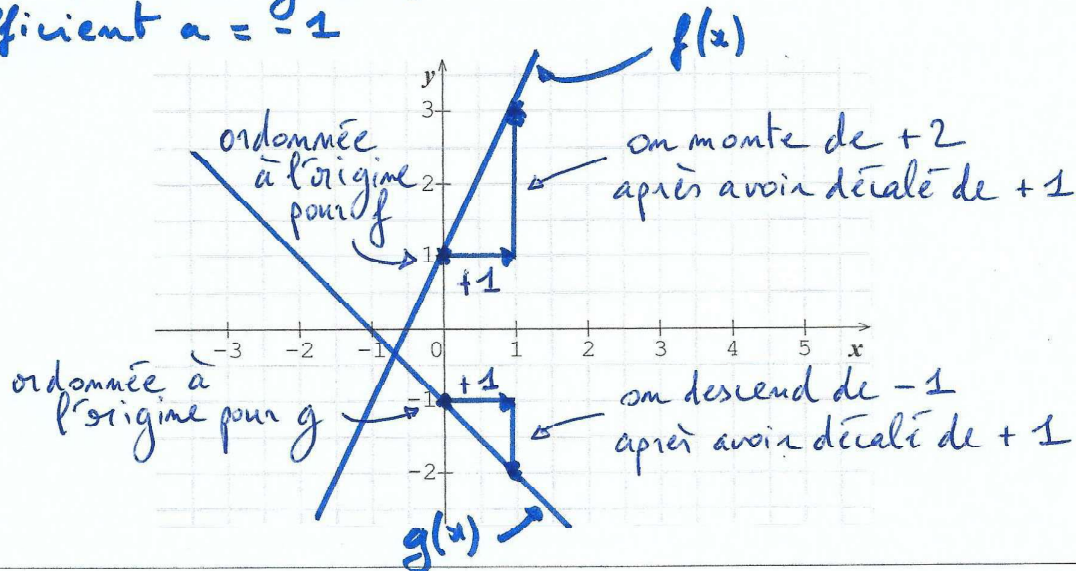 fficient a = -1
f(x)
y
3
2
1
ordonnée
à l'origine
pour f
on monte de +2
après avoir décalé de +1
+1
-3 -2 -1 0 1 2 3 4 5 x
ordonnée à
l'origine pour g
+1
-1
-2
on descend de -1
après avoir décalé de +1
g(x)